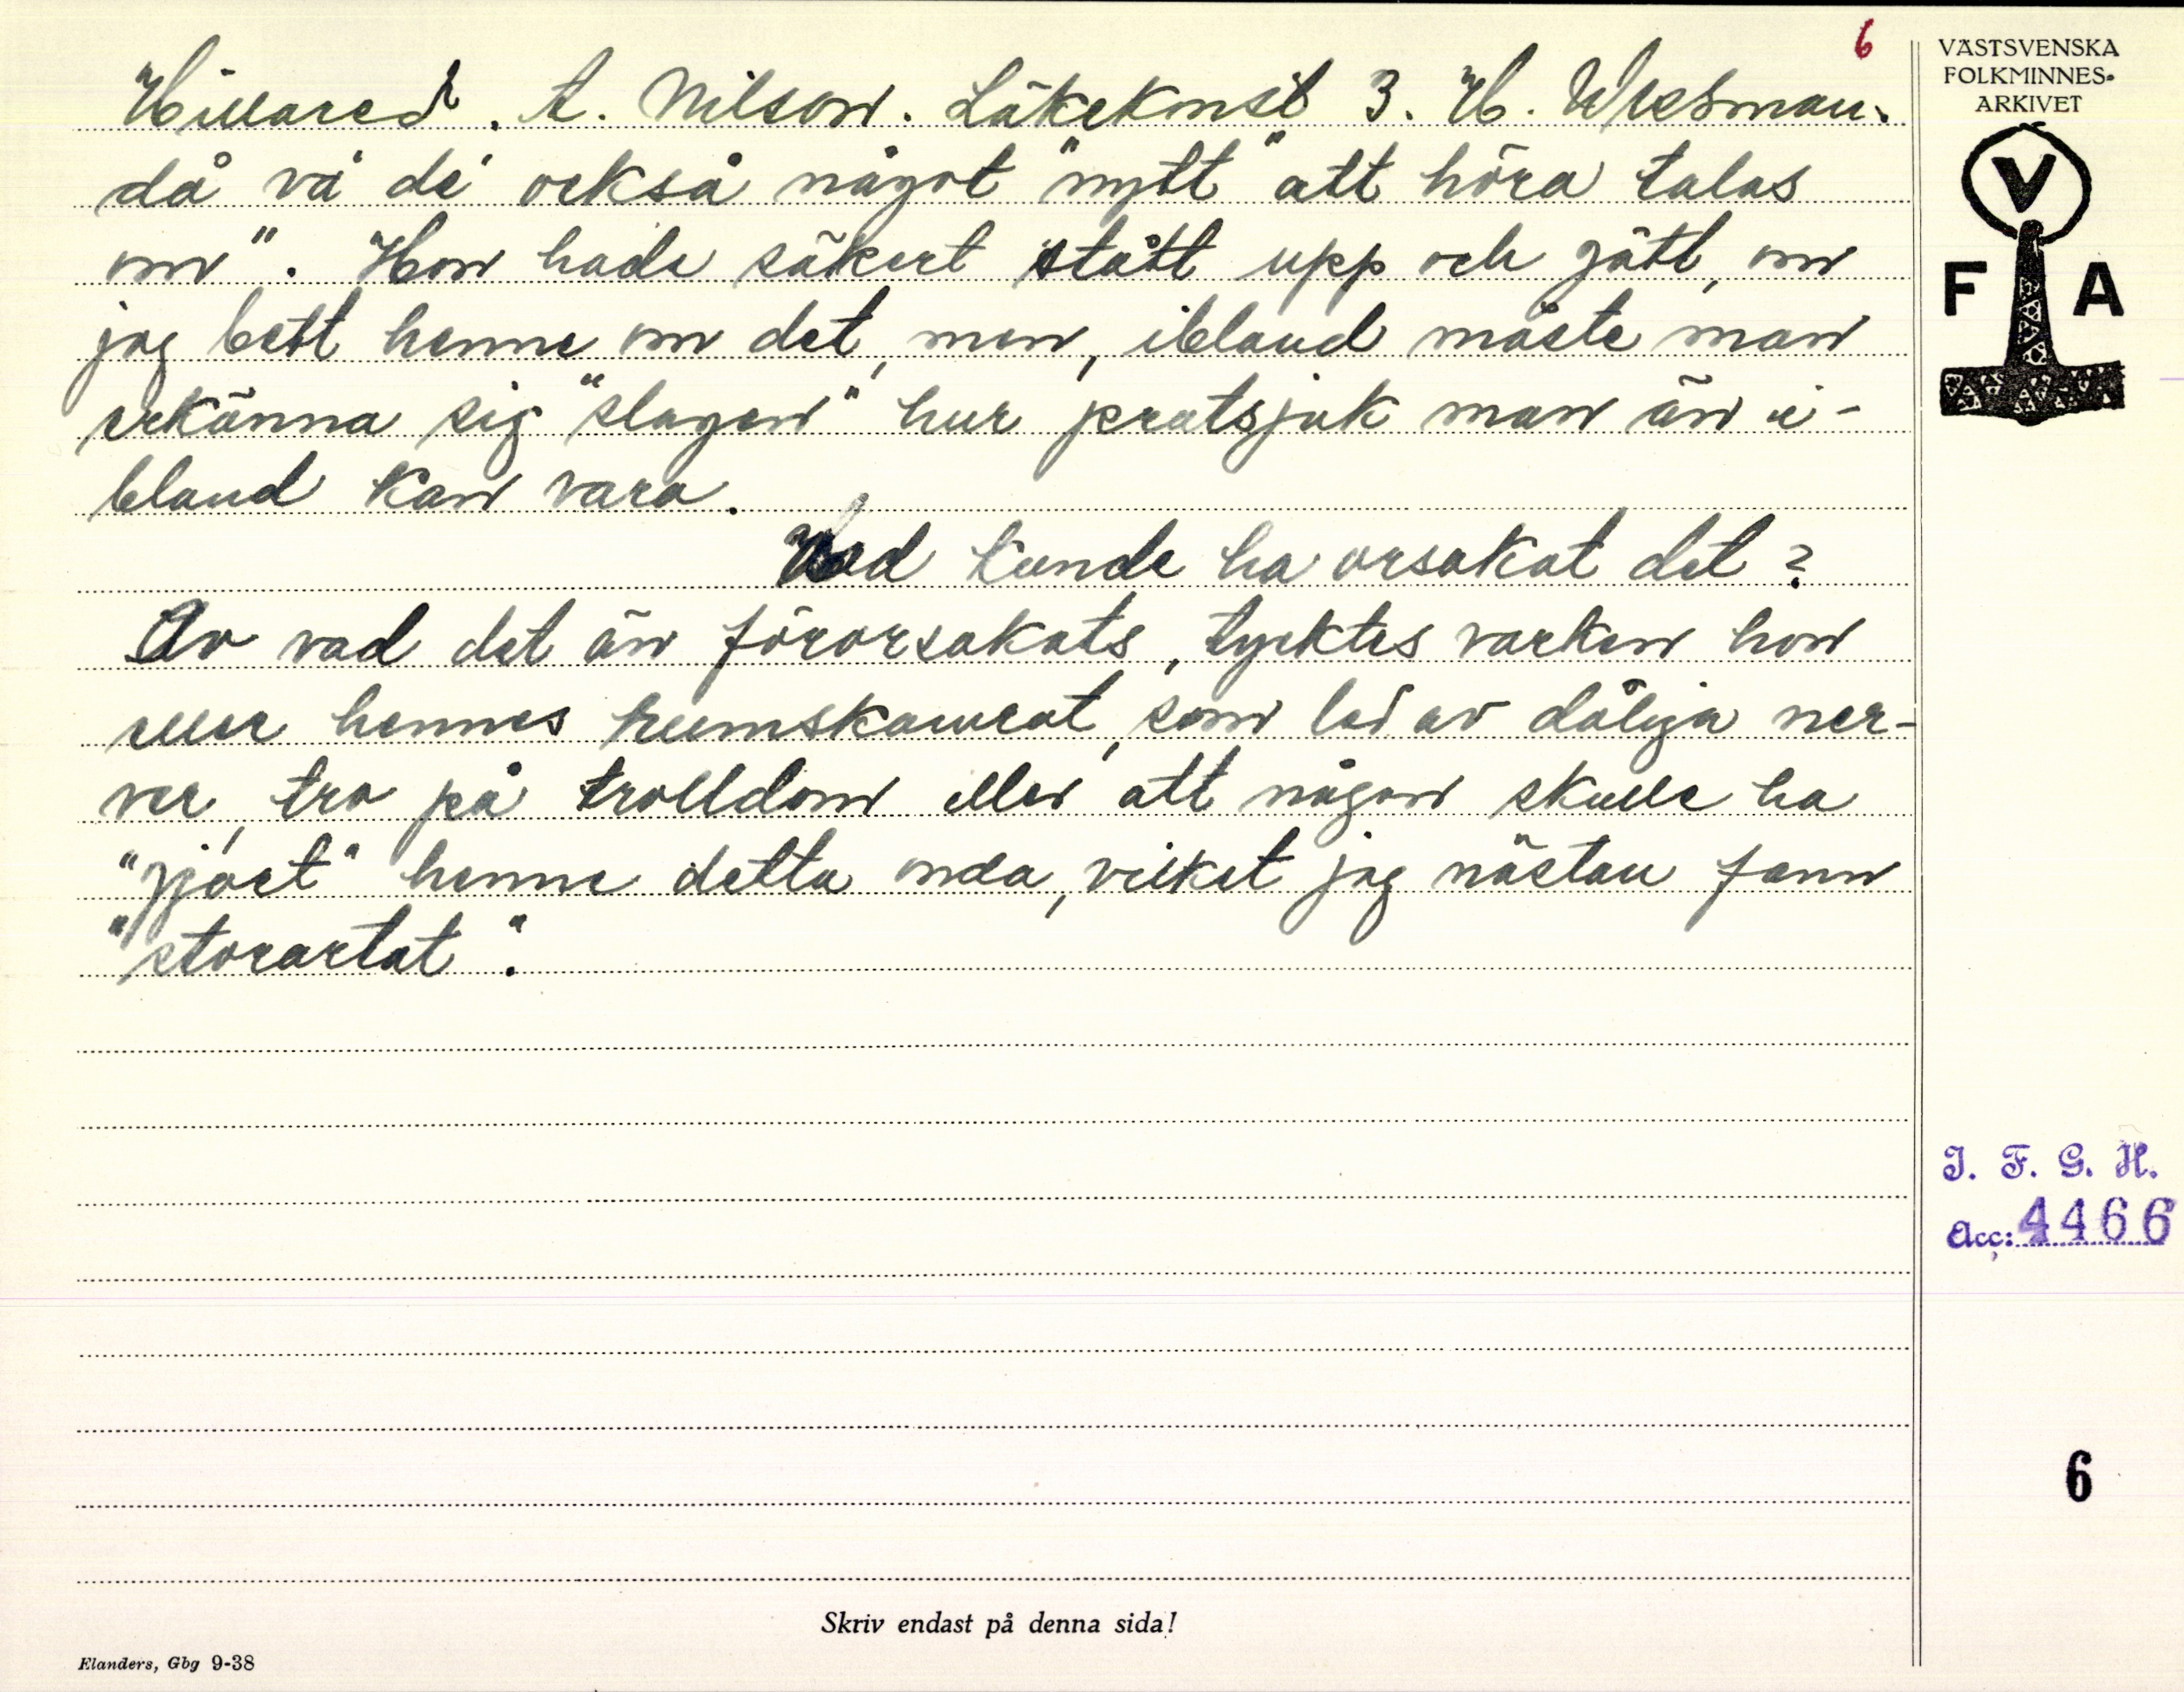 6
Hillared. A. Nilson. Läkekonst 3. H. Wresman.
då va' de' också något "nytt" att höra talas
om". Hon hade säkert stått upp och gått, om
jag bett henne om det, men, ibland måste man
erkänna sig "slagen" hur pratsjuk man än i-
bland kan vara.
Vad kunde ha orsakat det?
Av vad det än förorsakats, tycktes varken hon
eller hennes rumskamrat, som led av dåliga ner-
ver, tro på trolldom eller att någon skulle ha
"gjoet" henne detta onda, vilket jag nästan fann
"storartat".
VÄSTSVENSKA
FOLKMINNES-
ARKIVET
V
F A
I. F. G. H.
Acc: 4466
6
Skriv endast på denna sida!
Elanders, Gbg 9-38